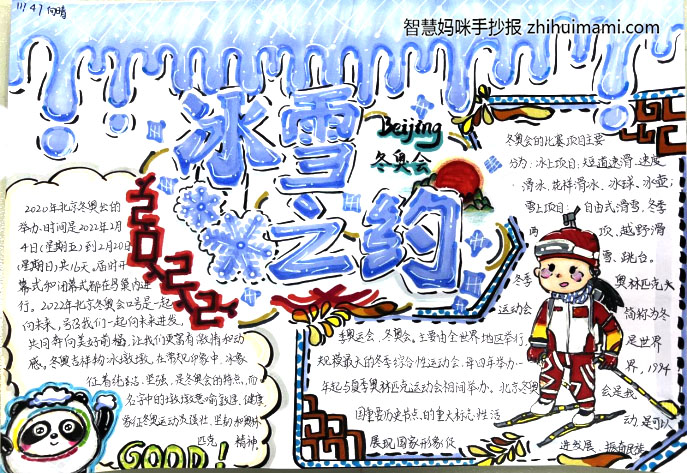 智慧妈咪手抄报 zhihuimami.com
冰雪
之约
Beijing
冬奥会
2022
2020年北京冬奥会的
举办时间是2022年2月
4日(星期五)到2月20日
(星期日)共16天。届时开
幕式和闭幕式都在鸟巢内进
行。2022年北京冬奥会口号是一起
向未来,
共同奔向美好前
感。冬奥吉祥物冰墩墩,在常规印象中,冰象
征着纯洁、坚强,是冬奥会的特点,而
名字中的墩墩意喻敦进、健康
匹克 精神。
GOOD!
冬奥会的比赛项目主要
分为:冰上项目:短道速滑、速度
滑冰、花样滑冰、冰球、冰壶;
雪上项目: 自由式滑雪、冬季
两 项、越野滑
雪、跳台。
冬季 奥林匹克
运动会 简称为冬
季奥运会、冬奥会。主要由全世界地区举行 是世界
规模最大的冬季综合性运动会,每四年举办一 界,1994
年起与夏季奥林匹克运动会相间举办。北京冬奥 会是我
国重要历史节点的重大标志性活 动,是可以
展现国家形象、促 进发展、振奋民族